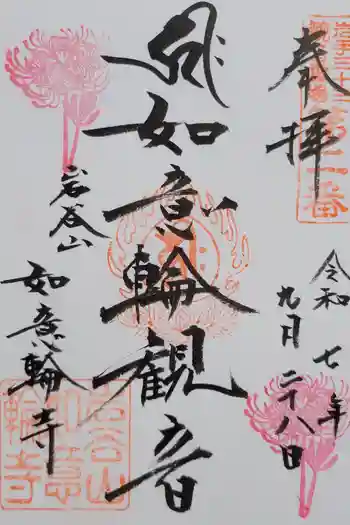 奉拝
第二番
令和七年
九月二十八日
如意輪観音
岩谷山
如意輪寺
岩谷山
如意
輪寺